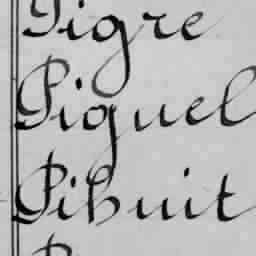 Pigre
Piquel
Pibuit